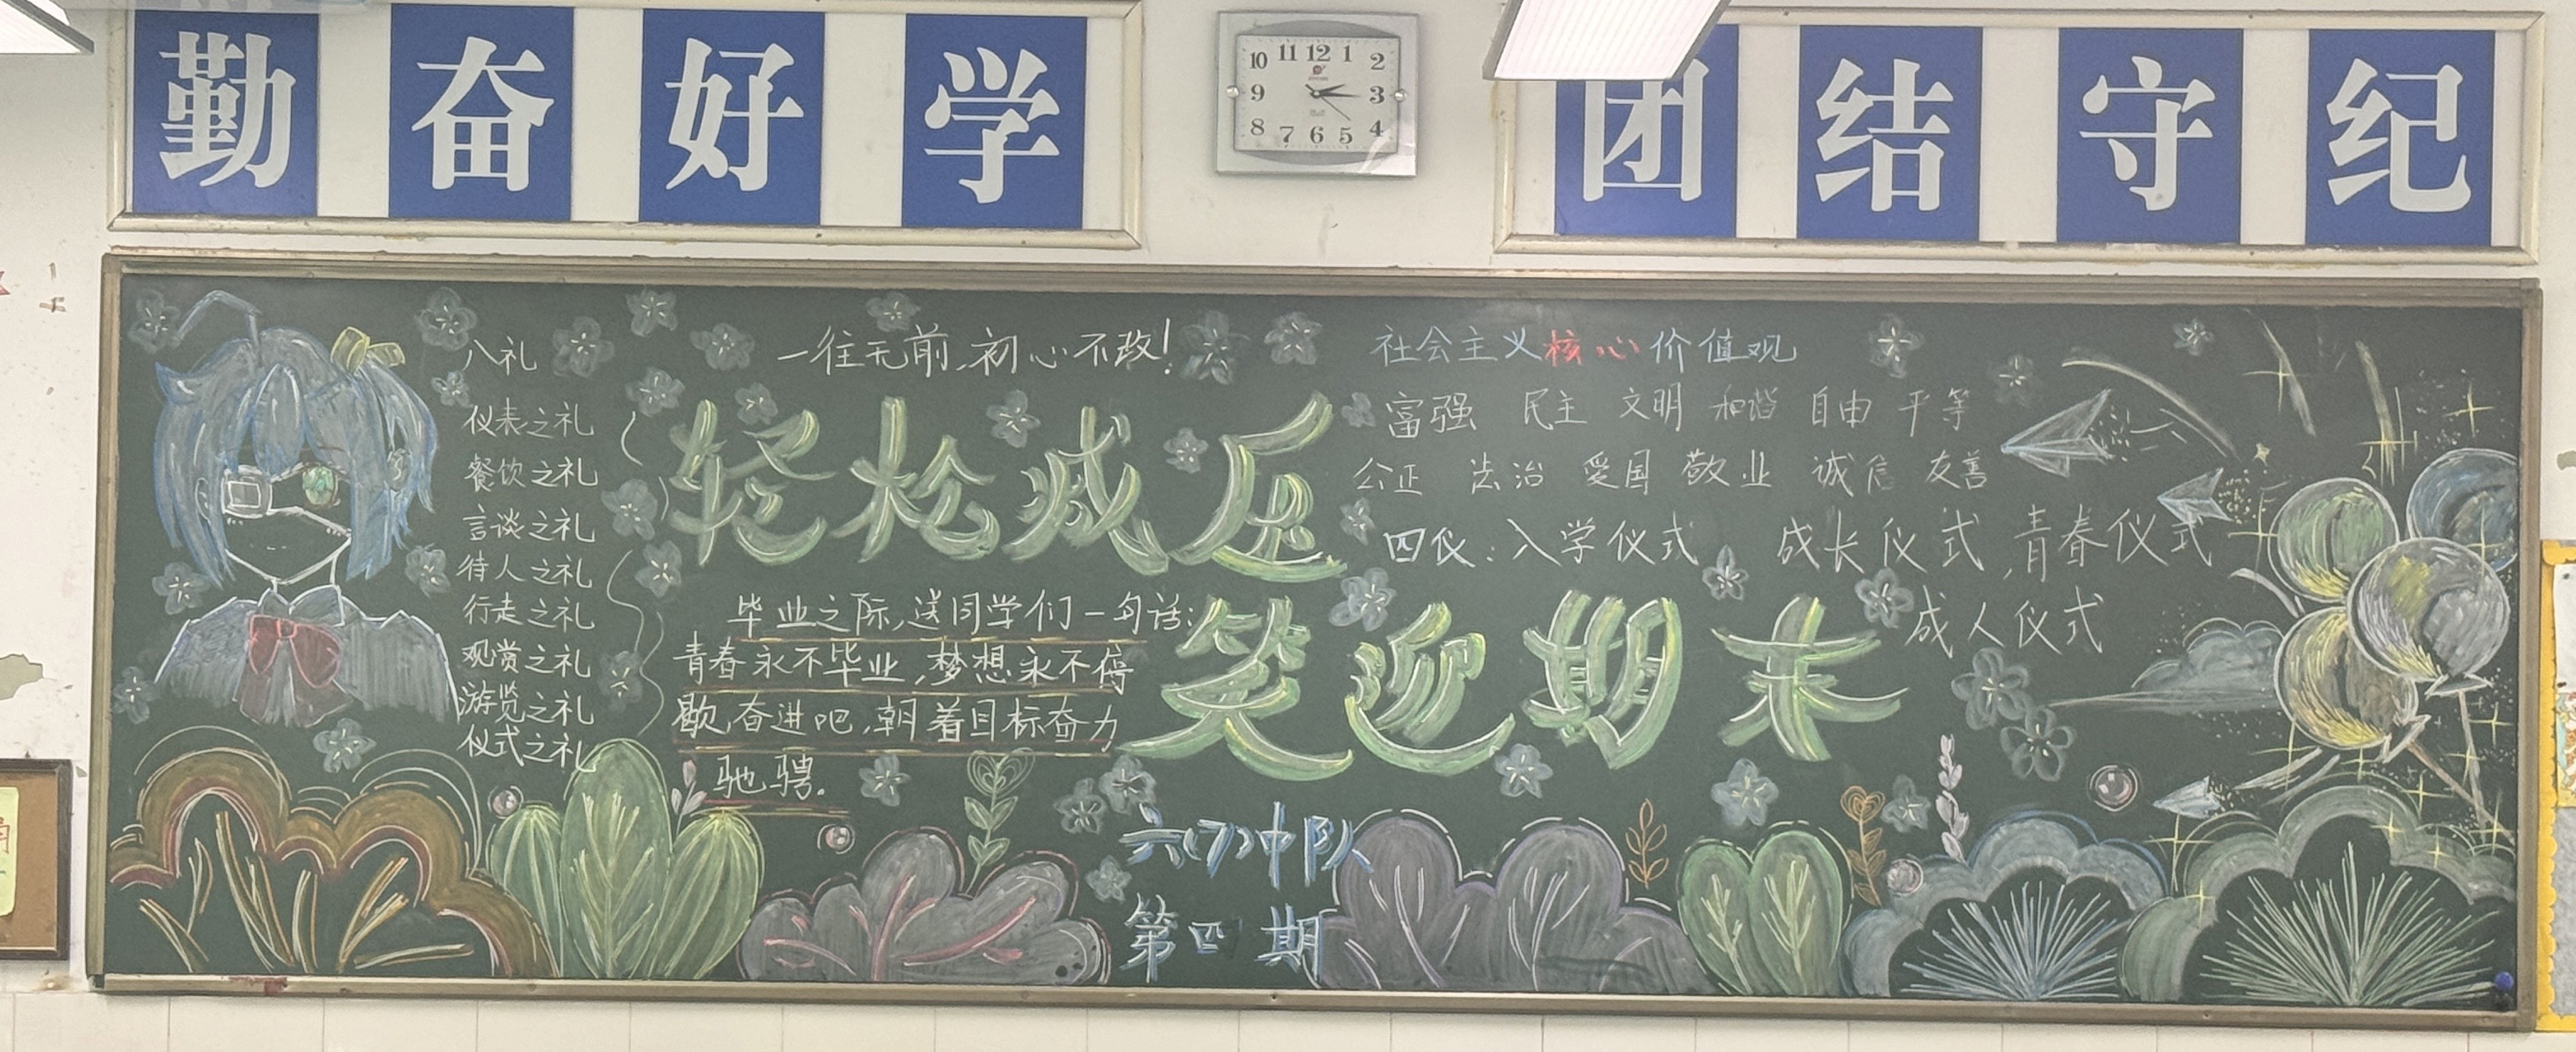 勤奋好学
团结守纪
10 11 12 1 2
9 3
8 7 6 5 4
八礼
仪表之礼
餐饮之礼
言谈之礼
待人之礼
行走之礼
观赏之礼
游览之礼
仪式之礼
一往无前,初心不改!
轻松减压
毕业之际,送同学们一句话:
青春永不毕业,梦想永不停
歇,奋进吧,朝着目标奋力
驰骋.
社会主义核心价值观
富强 民主 文明 和谐 自由 平等
公正 法治 爱国 敬业 诚信 友善
四仪:入学仪式 成长仪式,青春仪式
成人仪式
笑迎期末
六(7)中队
第四期